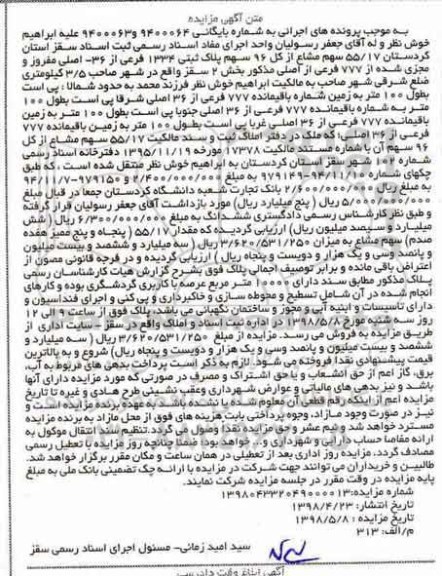 متن آگهی مزایده
به موجب پرونده های اجرائی به شماره بایگانی ۹۴۰۰۰۶۴ و ۹۴۰۰۰۶۳ علیه ابراهیم
خوش نظر و له آقای جعفر رسولیان واحد اجرای مفاد اسناد رسمی ثبت اسناد سقز استان
کردستان ۵۵/۱۷ سهم مشاع از کل ۹۶ سهم پلاک ثبتی ۱۳۳۴ فرعی از ۳۶- اصلی مفروز و
مجزی شده از ۷۷۷ فرعی از اصلی مذکور بخش ۲ سقز واقع در شهر صاحب ۳/۵ کیلومتری
ضلع شرقی شهر صاحب به مالکیت ابراهیم خوش نظر فرزند محمد به حدود شمالا : پی است
بطول ۱۰۰ متر به زمین شماره باقیمانده ۷۷۷ فرعی از ۳۶ اصلی شرقا پی است بطول ۱۰۰
متر به شماره باقیمانده ۷۷۷ فرعی از ۳۶ اصلی جنوبا پی است بطول ۱۰۰ متر به زمین
باقیمانده ۷۷۷ فرعی از ۳۶ اصلی غربا پی است بطول ۱۰۰ متر به زمین باقیمانده ۷۷۷
فرعی از ۳۶ اصلی؛ که ملک در دفتر املاک ثبت و سند مالکیت ۵۵/۱۷ سهم مشاع از کل
۹۶ سهم آن با شماره مستند مالکیت ۱۷۳۷۸ مورخه ۱۳۹۵/۱۱/۱۹ دفترخانه اسناد رسمی
شماره ۱۰۲ شهر سقز استان کردستان به ابراهیم خوش نظر منتقل شده است ، که طبق
چکهای شماره ۹۷۹۱۴۹-۹۴/۱۱/۱۰ به مبلغ ۲/۴۰۰/۰۰۰/۰۰۰ و ۹۷۹۱۵۰-۹۴/۱۱/۷
به مبلغ ریال ۲/۶۰۰/۰۰۰/۰۰۰ بانک تجارت شعبه دانشگاه کردستان جمعا در قبال مبلغ
۵/۰۰۰/۰۰۰/۰۰۰ ریال ( پنج میلیارد ریال) مورد بازداشت آقای جعفر رسولیان قرار گرفته
و طبق نظر کارشناس رسمی دادگستری ششدانگ به مبلغ ۶/۳۰۰/۰۰۰/۰۰۰ ریال( شش
میلیارد و سیصد میلیون ریال) ارزیابی گردیده که مقدار ۵۵/۱۷ ( پنجاه و پنج ممیز هفده
صدم) سهم مشاع به میزان ۳/۶۲۰/۵۳۱/۲۵۰ ریال ( سه میلیارد و ششصد و بیست میلیون
و پانصد وسی و یک هزار و دویست و پنجاه ریال ) ارزیابی گردیده و در فرجه قانونی مصون از
اعتراض باقی مانده و برابر توصیف اجمالی پلاک فوق بشرح گزارش هیات کارشناسان رسمی
پلاک مذکور مطابق سند دارای ۱۰۰۰۰ متر مربع عرصه با کاربری گردشگری بوده و کارهای
انجام شده در آن شامل تسطیح و محوطه سازی و خاکبرداری و پی کنی و اجرای فنداسیون و
دارای تاسیسات و ابنیه آبی و مجوز و ساختمان نگهبانی می باشد، پلاک فوق از ساعت ۹ الی ۱۲
روز سه شنبه مورخ ۱۳۹۸/۵/۸ در اداره ثبت اسناد و املاک واقع در سقز - سایت اداری از
طریق مزایده به فروش می رسد. مزایده از مبلغ ۳/۶۲۰/۵۳۱/۲۵۰ ریال ( سه میلیارد و
ششصد و بیست میلیون و پانصد وسی و یک هزار و دویست و پنجاه ریال) شروع و به بالاترین
قیمت پیشنهادی نقدا فروخته می شود. لازم به ذکر است پرداخت بدهی های مربوط به آب،
برق، گاز اعم از حق انشعاب و یا حق اشتراک و مصرف در صورتی که مورد مزایده دارای آنها
باشد و نیز بدهی های مالیاتی و عوارض شهرداری وعقب نشینی طرح هادی و غیره تا تاریخ
مزایده اعم از اینکه رقم قطعی آن معلوم شده یا نشده باشد به عهده برنده مزایده است و
نیز در صورت وجود مازاد، وجوه پرداختی بابت هزینه های فوق از محل مازاد به برنده مزایده
مسترد خواهد شد و نیم عشر و حق مزایده نقدا وصول می گردد.تنظیم سند انتقال موکول به
ارائه مفاصا حساب دارایی و شهرداری و ... خواهد بود؛ ضمنا چنانچه روز مزایده با تعطیل رسمی
مصادف گردد، مزایده روز اداری بعد از تعطیلی در همان ساعت و مکان مقرر برگزار خواهد شد.
طالبین و خریداران می توانند جهت شرکت در مزایده با ارائه چک تضمینی بانک ملی به مبلغ
پایه مزایده در وقت مقرر در جلسه مزایده شرکت نمایند.
شماره مزایده:۱۳۹۸۰۴۳۳۲۰۴۹۰۰۰۰۱۳
تاریخ انتشار: ۱۳۹۸/۴/۲۳
تاریخ مزایده : ۱۳۹۸/۵/۸
م/الف: ۳۱۳
سید امید زمانی- مسئول اجرای اسناد رسمی سقز
آگهی ابلاغ وقت دادرسی